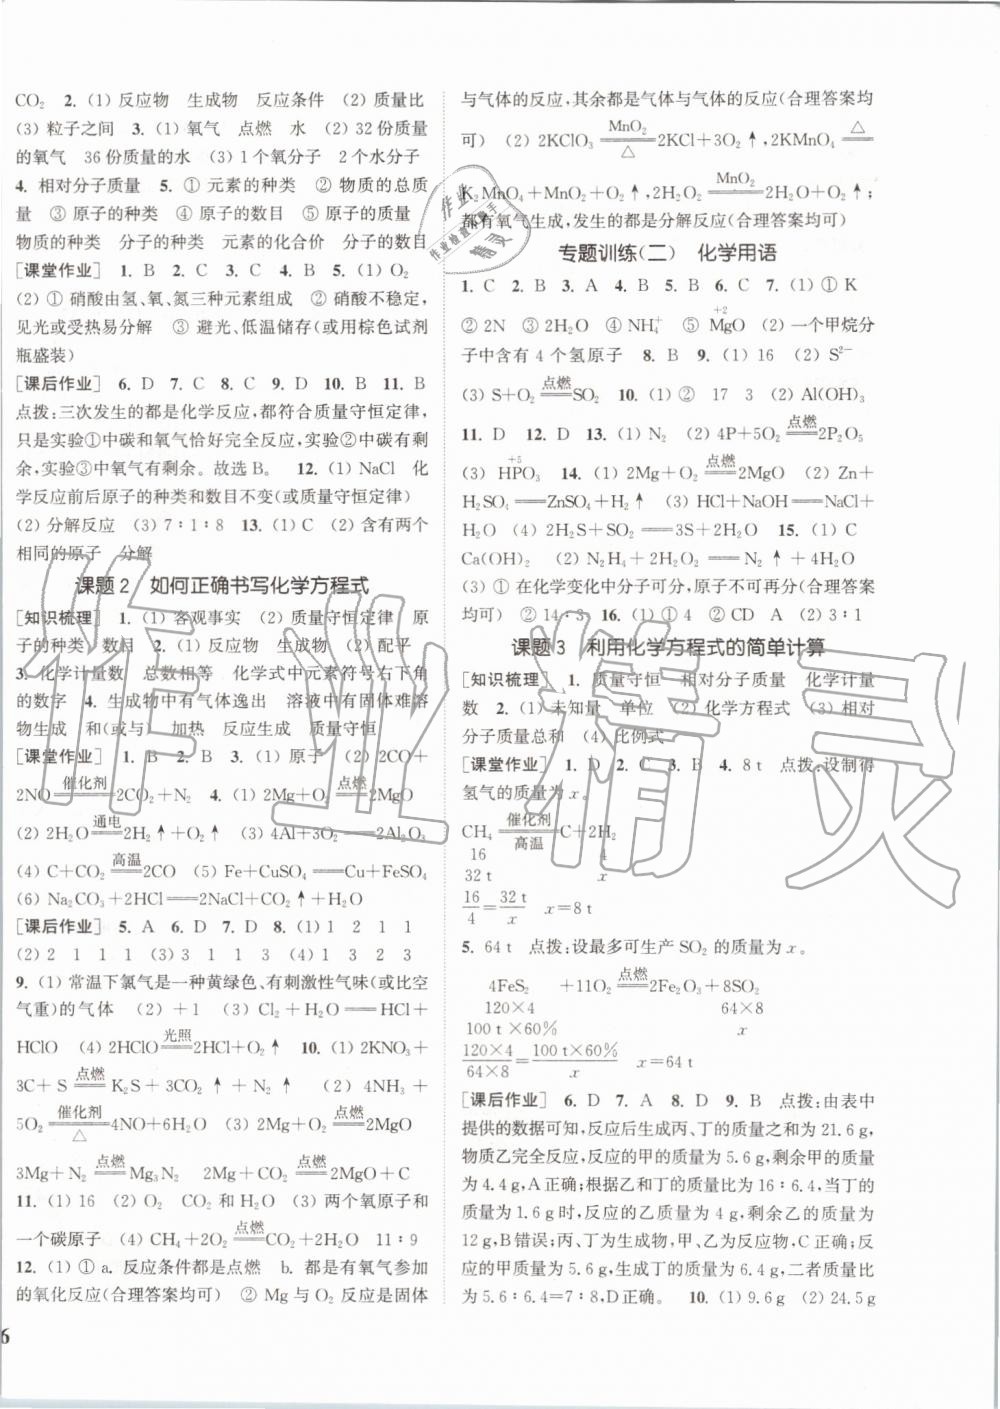 CO₂ 2. (1) 反应物 生成物 反应条件 (2) 质量比
(3) 粒子之间 3. (1) 氧气 点燃 水 (2) 32份质量
的氧气 36份质量的水 (3) 1个氧分子 2个水分子
4. 相对分子质量 5. ① 元素的种类 ② 物质的总质
量 ③ 原子的种类 ④ 原子的数目 ⑤ 原子的质量
物质的种类 分子的种类 元素的化合价 分子的数目
[课堂作业] 1. B 2. C 3. D 4. B 5. (1) O₂
(2) ① 硝酸由氢、氧、氮三种元素组成 ② 硝酸不稳定,
见光或受热易分解 ③ 避光、低温储存(或用棕色试剂
瓶盛装)
[课后作业] 6. D 7. C 8. C 9. D 10. B 11. B
点拨:三次发生的都是化学反应,都符合质量守恒定律,
只是实验①中碳和氧气恰好完全反应,实验②中碳有剩
余,实验③中氧气有剩余。故选B。 12. (1) NaCl 化
学反应前后原子的种类和数目不变(或质量守恒定律)
(2) 分解反应 (3) 7∶1∶8 13. (1) C (2) 含有两个
相同的原子 分解
课题2 如何正确书写化学方程式
[知识梳理] 1. (1) 客观事实 (2) 质量守恒定律 原
子的种类 数目 2. (1) 反应物 生成物 (2) 配平
3. 化学计量数 总数相等 化学式中元素符号右下角
的数字 4. 生成物中有气体逸出 溶液中有固体难溶
物生成 和(或与) 加热 反应生成 质量守恒
[课堂作业] 1. B 2. B 3. (1) 原子 (2) 2CO+
2NO=催化剂=2CO₂+N₂ 4. (1) 2Mg+O₂=点燃=2MgO
(2) 2H₂O=通电=2H₂↑+O₂↑ (3) 4Al+3O₂══2Al₂O₃
(4) C+CO₂=高温=2CO (5) Fe+CuSO₄══Cu+FeSO₄
(6) Na₂CO₃+2HCl══2NaCl+CO₂↑+H₂O
[课后作业] 5. A 6. D 7. D 8. (1) 1 2 1 1
(2) 2 1 1 1 (3) 1 3 1 3 (4) 1 3 2 3
9. (1) 常温下氯气是一种黄绿色、有刺激性气味(或比空
气重)的气体 (2) +1 (3) Cl₂+H₂O══HCl+
HClO (4) 2HClO=光照=2HCl+O₂↑ 10. (1) 2KNO₃+
3C+S=点燃=K₂S+3CO₂↑+N₂↑ (2) 4NH₃+
5O₂=催化剂/△=4NO+6H₂O (3) 2Mg+O₂=点燃=2MgO
3Mg+N₂=点燃=Mg₃N₂ 2Mg+CO₂=点燃=2MgO+C
11. (1) 16 (2) O₂ CO₂和H₂O (3) 两个氧原子和
一个碳原子 (4) CH₄+2O₂=点燃=CO₂+2H₂O 11∶9
12. (1) ① a. 反应条件都是点燃 b. 都是有氧气参加
的氧化反应(合理答案均可) ② Mg与O₂反应是固体
6
与气体的反应,其余都是气体与气体的反应(合理答案均
可) (2) 2KClO₃=MnO₂/△=2KCl+3O₂↑,2KMnO₄=△=
K₂MnO₄+MnO₂+O₂↑,2H₂O₂=MnO₂=2H₂O+O₂↑;
都有氧气生成,发生的都是分解反应(合理答案均可)
专题训练(二) 化学用语
1. C 2. B 3. A 4. B 5. B 6. C 7. (1) ① K
② 2N ③ 2H₂O ④ NH₄⁺ ⑤ M͏gO(+2) (2) 一个甲烷分
子中含有4个氢原子 8. B 9. (1) 16 (2) S²⁻
(3) S+O₂=点燃=SO₂ 10. (1) ② 17 3 (2) Al(OH)₃
11. D 12. D 13. (1) N₂ (2) 4P+5O₂=点燃=2P₂O₅
(3) HPO₃(+5) 14. (1) 2Mg+O₂=点燃=2MgO (2) Zn+
H₂SO₄══ZnSO₄+H₂↑ (3) HCl+NaOH══NaCl+
H₂O (4) 2H₂S+SO₂══3S+2H₂O 15. (1) C
Ca(OH)₂ (2) N₂H₄+2H₂O₂══N₂↑+4H₂O
(3) ① 在化学变化中分子可分,原子不可分(合理答案
均可) ② 14∶3 16. (1) ① 4 ② CD A (2) 3∶1
课题3 利用化学方程式的简单计算
[知识梳理] 1. 质量守恒 相对分子质量 化学计量
数 2. (1) 未知量 单位 (2) 化学方程式 (3) 相对
分子质量总和 (4) 比例式
[课堂作业] 1. D 2. C 3. B 4. 8 t 点拨:设制得
氢气的质量为x。
CH₄=催化剂/高温=C+2H₂
16 4
32 t x
16/4=32 t/x x=8 t
5. 64 t 点拨:设最多可生产SO₂的质量为x。
4FeS₂ +11O₂=点燃=2Fe₂O₃+8SO₂
120×4 64×8
100 t×60% x
120×4/64×8=100 t×60%/x x=64 t
[课后作业] 6. D 7. A 8. D 9. B 点拨:由表中
提供的数据可知,反应后生成丙、丁的质量之和为21.6 g,
物质乙完全反应,剩余甲的质量为5.6 g,剩余甲的质量为